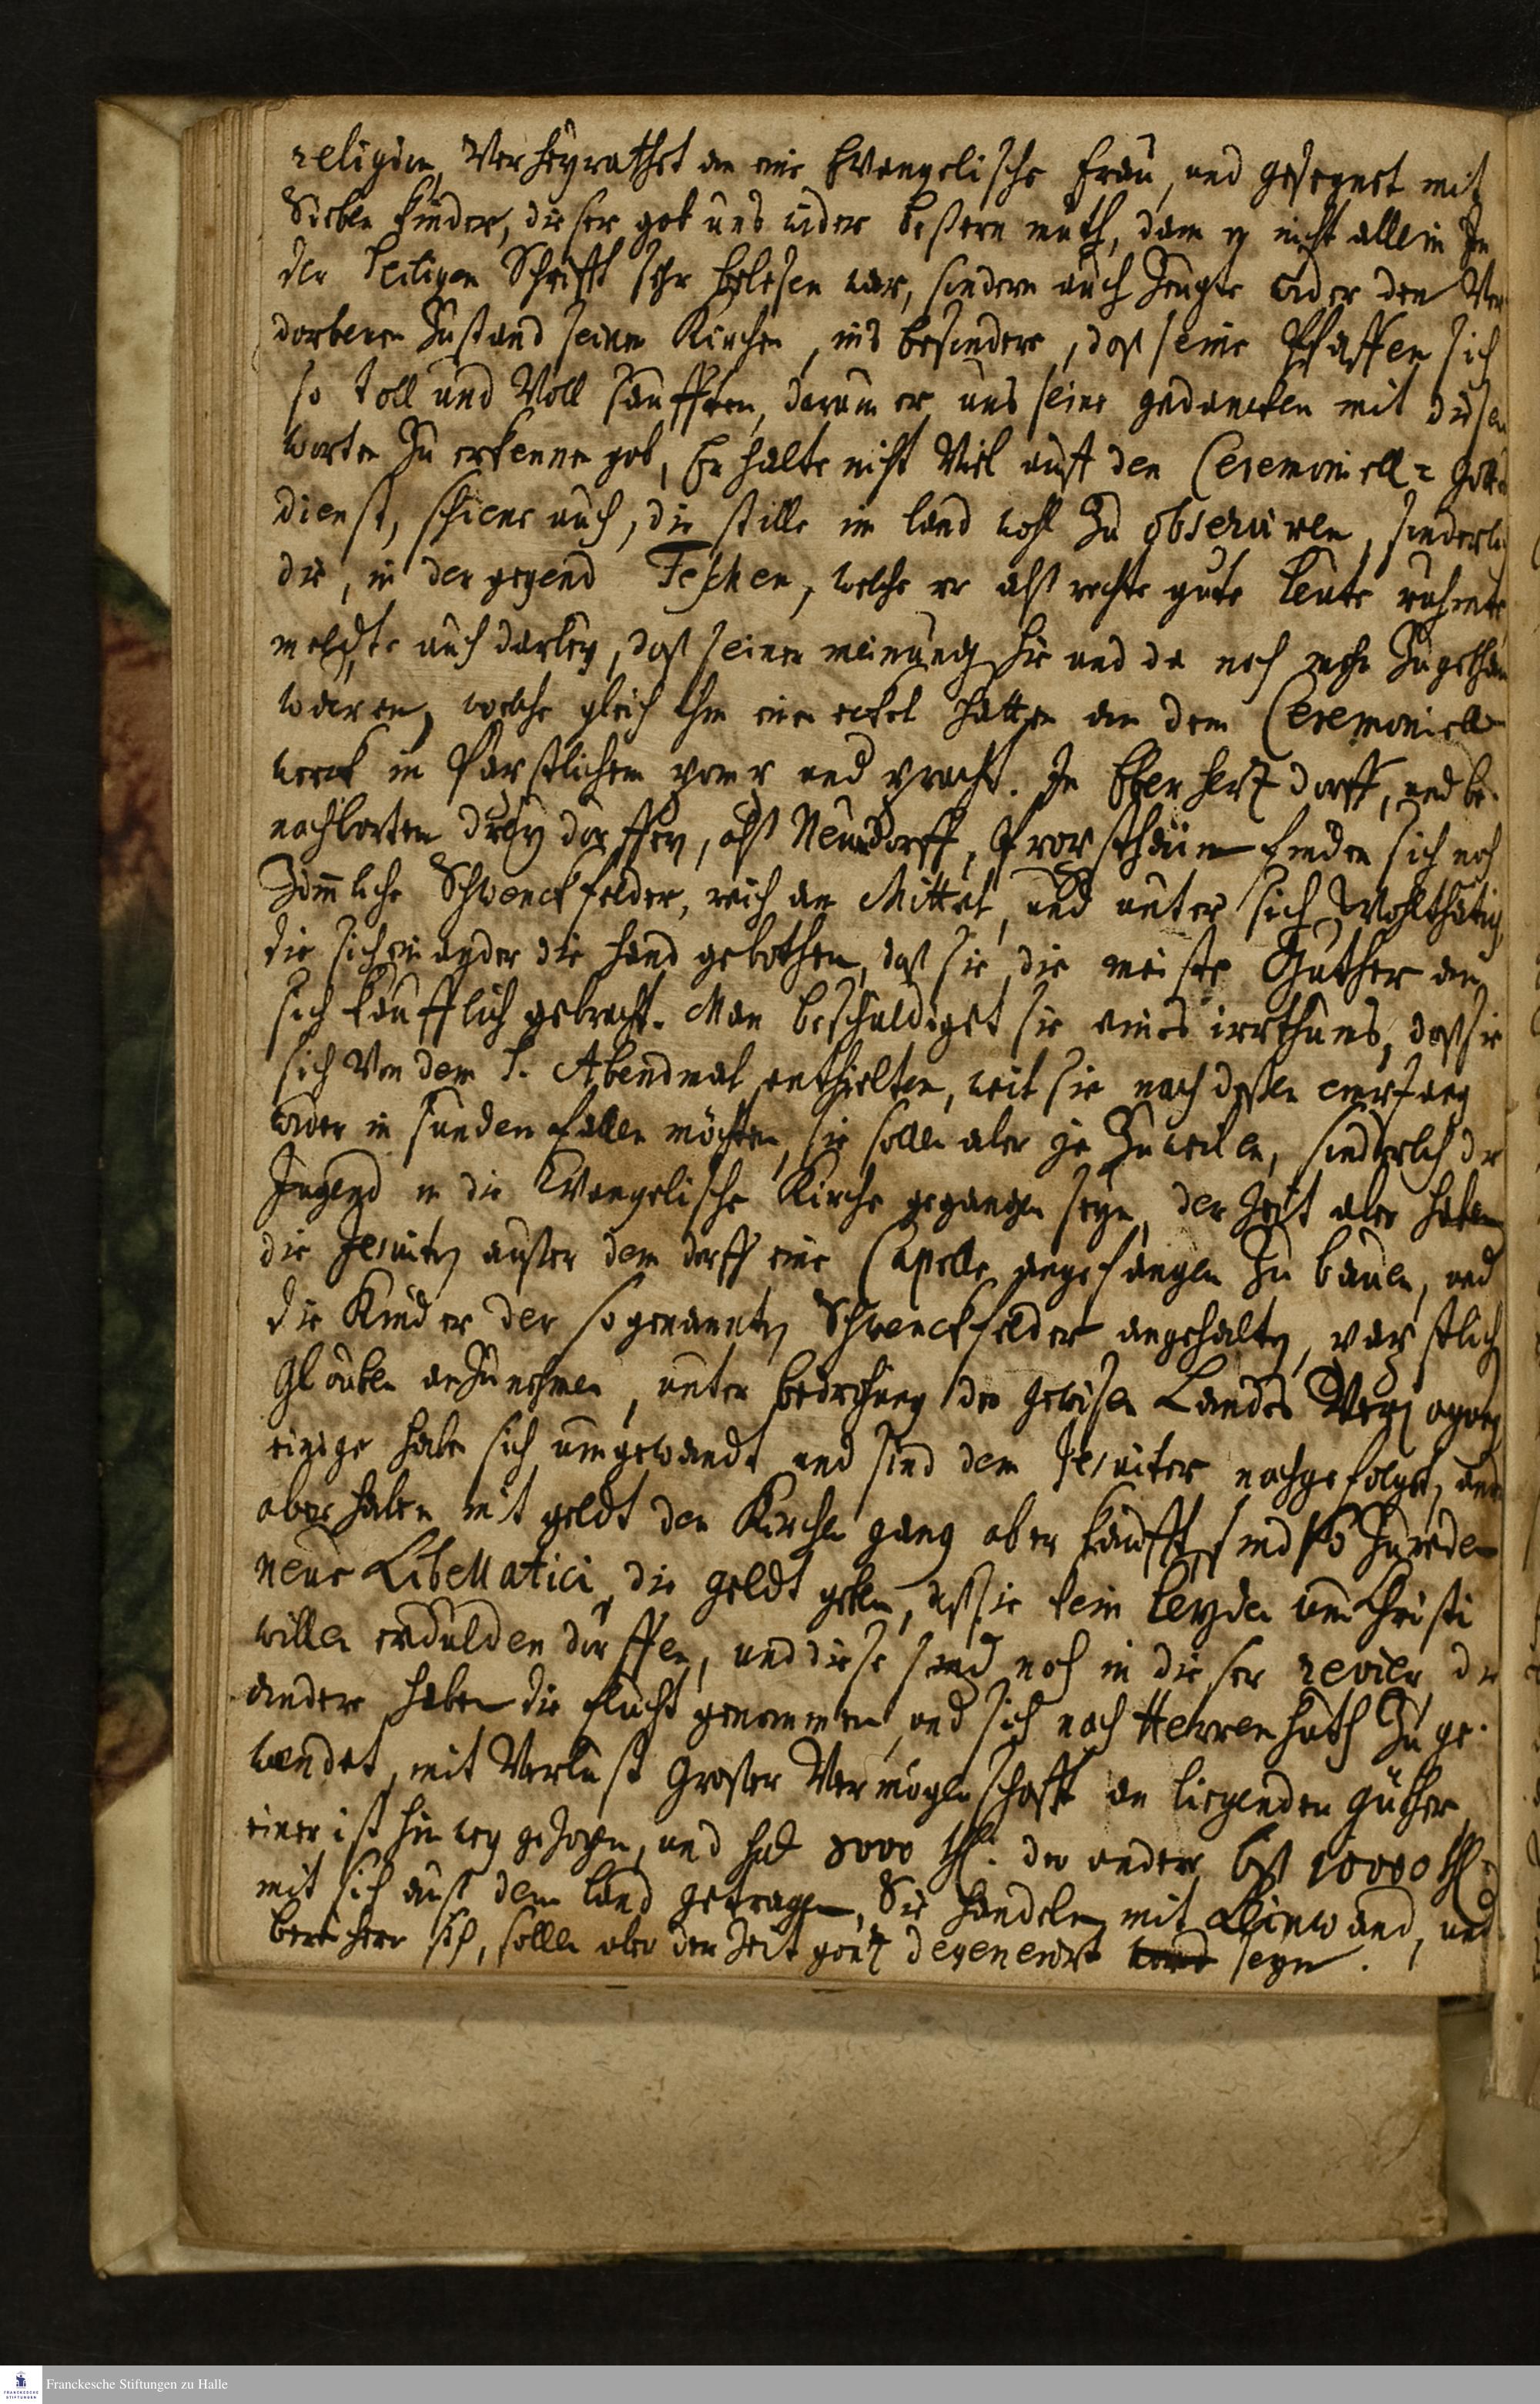 religion, Verheyrathet an eine Evangelische frau, und gesegnet mit
Sieben kinder, dieser gab uns wider bessern muth, dann er nicht allein in
der heiligen Schrifft sehr belesen war, sondern auch Zeugte wider den Ver
dorbenen Zustand seiner Kirchen, ins besondere, daß seine Pfaffen sich
so toll und Voll saufften, darum er uns seine gedancken mit diesen
worten zu erkennen gab, Er halte nicht Viel auff den Ceremoniell = Gottes
dienst, schiene auch, die stille im land wohl zu observiren, sonderlich
die, in der gegend Teschen, welche er alß rechte gute leute rühmte,
meldte auch darbey, daß seiner meinung hie und da noch mehr Zugethan
waren, welche gleich ihm einen eckel hatten an dem Ceremoniell
werck in Päpstlichem pomp und pracht. In Ober Hertzdorff, und be-
nachbarten drey dorffen, alß Neundorff, Propsthäün finden sich noch
Zimliche Schwenckfelder, reich an Mittel, und unter sich Wohlthätig,
die sich ein ander die hand gebothen, daß sie die meiste Güther an
sich käufflich gebracht. Man beschuldiget sie eines irrthums, daß sie
sich Von dem H. Abendmal enthielten, weil sie nach dessen empfang
wider in sünden fallen möchten, sie sollen aber je zu weilen, sonderlich die
Jugend in die Evangelische Kirche gegangen seyn, der Zeit aber haben
die Jesuiten ausser dem dorff eine Capelle angefangen zu bauen, und
die Kinder der so genannten Schwenckfelder angehalten, päpstlich
Glauben anzunehmen, unter bedrohung der gewissen Landes Verjagung
einige haben sich umgewandt und sind dem Jesuiter nachgefolget, andere
aber haben mit geldt den Kirchen gang aber kaufft, sind so zu reden
neue Libellatici, die geldt geben, daß sie kein leyden um Christi
willen erdulden dörffen, und diese sind noch in dieser revier, die
andere haben die flucht genommen, und sich nach Herren huth zu ge-
wendet, mit Verlust grosser Vermögenschafft an liegenden güther,
einer ist hin weg gezogen, und hat 8000 thl: der ander biß 10000 thl:
mit sich auß dem land getragen, Sie handeln mit Leinwand, und
bereichern sich, sollen aber der Zeit gantz degenerirt seyn.
Franckesche Stiftungen zu Halle